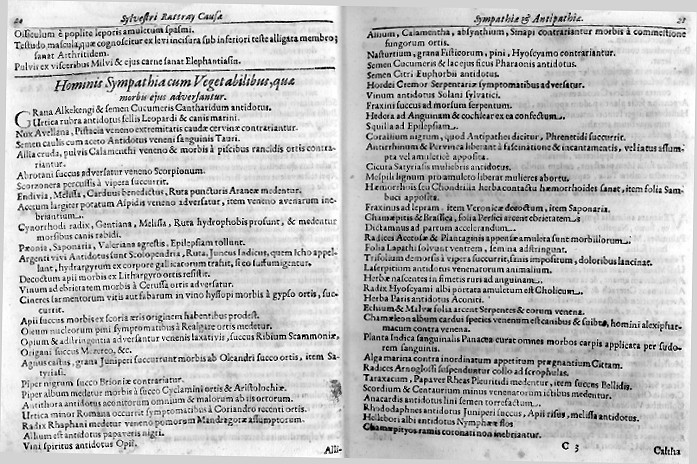 20 Sylvestri Rattray Causæ
Ossiculum è poplite leporis amuletum spasmi.
Testudo mascula, quæ cognoscitur ex levi incisura sub inferiori teste alligata membro;
sanat Arthritidem.
Pulvis ex visceribus Milvi & ejus carne sanat Elephantiasin.
Hominis Sympathia cum Vegetabilibus, quæ
morbis ejus adversantur.
GRana Alkekengi & semen Cucumeris Cantharidum antidotus.
Urtica rubra antidotus fellis Leopardi & canis marini.
Nux Avellana, Pistacia veneno extremitatis caudæ cervinæ contrariantur.
Semen caulis cum aceto Antidotus veneni sanguinis Tauri.
Allia cruda, pulvis Calamenthi veneno & morbis à piscibus rancidis ortis contra-
riantur.
Abrotani succus adversatur veneno Scorpionum.
Scorzonera percussis à vipera succurrit.
Endivia, Melissa, Carduus benedictus, Ruta puncturis Araneæ medentur.
Acetum largiter potatum Aspidis veneno adversatur, item veneno avenarum ine-
briantium.
Cynorrhodi radix, Gentiana, Melissa, Ruta hydrophobis prosunt, & medentur
morsibus canis rabidi.
Pæonia, Saponaria, Valeriana agrestis, Epilepsiam tollunt.
Argenti vivi Antidotus sunt Scolopendria, Ruta, Juncus ladicus, quem Icho appel-
lant, hydrargyrum ex corpore gallicatorum trahit, si eo suffumigantur.
Decoctum apii morbis ex Lithargyro ortis resistit.
Vinum ad ebrietatem morbis à Cerussa ortis adversatur.
Cineres sarmentorum vitis aut fabarum in vino hyssopi morbis à gypso ortis, suc-
currit.
Apii succus morbis ex scoria æris originem habentibus prodest.
Oleum nucleorum pini symptomatibus à Realgare ortis medetur.
Opium & adstringentia adversantur venenis laxativis, succus Ribium Scammoniæ,
Origani succus Mezereo, &c.
Agnus castus, grana Juniperi succurrunt morbis ab Oleandri succo ortis, item Sa-
tyriasi.
Piper nigrum succo Brioniæ contrariatur.
Piper album medetur morbis à succo Cyclamini ortis & Aristolochiæ.
Antithora antidotus aconitorum omnium & malorum ab iis ortorum.
Urtica minor Romana occurrit symptomatibus à Coriandro recenti ortis.
Radix Rhaphani medetur veneno pomorum Mandragoræ assumptorum.
Allium est antidotus papaveris nigri.
Vini spiritus antidotus Opii.
Alli-
Sympathiæ & Antipathiæ. 21
Allium, Calamentha, absynthium, Sinapi contrariantur morbis à commestione
fungorum ortis.
Nasturtium, grana Fisticorum, pini, Hyoscyamo contrariantur.
Semen Cucumeris & lac ejus ficus Pharaonis antidotus.
Semen Citri Euphorbii antidotus.
Hordei Cremor Serpentariæ symptomatibus adversatur.
Vinum antidotus Solani sylvatici.
Fraxini succus ad morsum serpentum.
Hedera ad Anguinam & cochlear ex ea confectum.
Squilla ad Epilepsiam.
Corallium nigrum, quod Antipathes dicitur, Phrenetidi succurrit.
Antirrhinum & Pervinca liberant à fascinatione & incantamentis, vel intus assum-
pta vel amuleticè apposita.
Cicuta Satyriasis muliebris antidotus.
Mespili lignum pro amuleto liberat mulieres abortu.
Hæmorrhois seu Chondrilla herba contactu hæmorrhoides sanat, item folia Sam-
buci apposita.
Fraxinus ad lepram, item Veronicæ decoctum, item Saponaria.
Chamæpitis & Brassica, folia Persici arcent ebrietatem.
Dictamnus ad partum accelerandum.
Radices Acetosæ & Plantaginis appensæ amuleta sunt morbillorum.
Folia Lapathi solvunt ventrem, semina adstringunt.
Trifolium demorsis à vipera succurrit, sanis impositum, doloribus lancinat.
Laserpitium antidotus venenatorum animalium.
Herbæ nascentes in fimetis ruri ad anguinam.
Radix Hyoscyami albi portata amuletum est Cholicum.
Herba Paris antidotus Aconiti.
Echium & Malvæ folia arcent Serpentes & eorum venena.
Chamæleon album cardui species venenum est canibus & suibus, homini alexiphar-
macum contra venena.
Planta Indica sanguinalis Panacea curat omnes morbos carpis applicata per sudo-
rem sanguinis.
Alga marina contra inordinatum appetitum prægnantium Cittam.
Radices Arnoglossi suspenduntur collo ad scrophulas.
Taraxacum, Papaver Rheas Pleuritidi medentur, item succus Bellidis.
Scordium & Centaurium minus venenatorum ictibus medetur.
Anacardis antidotus lini semen torrefactum.
Rhododaphnes antidotus Juniperi succus, Apii risus, melissa antidotus.
Hellebori albi antidotus Nymphææ flos.
Chamæpityos ramis coronati non inebriantur.
C 3 Caltha